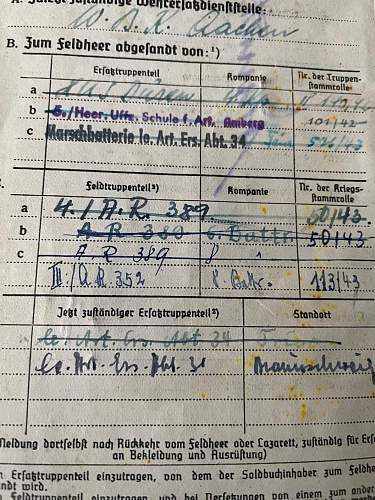 A. Zuletzt zuständige Wehrersatzdienststelle:
W. B. K. Aachen
B. Zum Feldheer abgesandt von:¹)
Ersatztruppenteil Kompanie Nr. der Truppenstammrolle
a Düren
b 6./Heer. Uffz. Schule f. Art. Amberg 101/43
c Marschbatterie le. Art. Ers. Abt. 34 526/43
Feldtruppenteil²) Kompanie Nr. der Kriegsstammrolle
a 4./A.R. 389 60/43
b A.R. 389 6. Battr. 50/43
c A.R. 389 8
III/A.R. 352 Battr. 113/43
Jetzt zuständiger Ersatztruppenteil²) Standort
le. Art. Ers. Abt 34 Trier
le. Art. Ers. Abt. 31 Braunschweig
Meldung dortselbst nach Rückkehr vom Feldheer oder Lazarett, zuständig für Ers
an Bekleidung und Ausrüstung)
m Ersatztruppenteil einzutragen, von dem der Soldbuchinhaber zum Feldhe
andt wird.
m Feldtruppenteil einzutragen und bei Versetzungen von einem zum ander